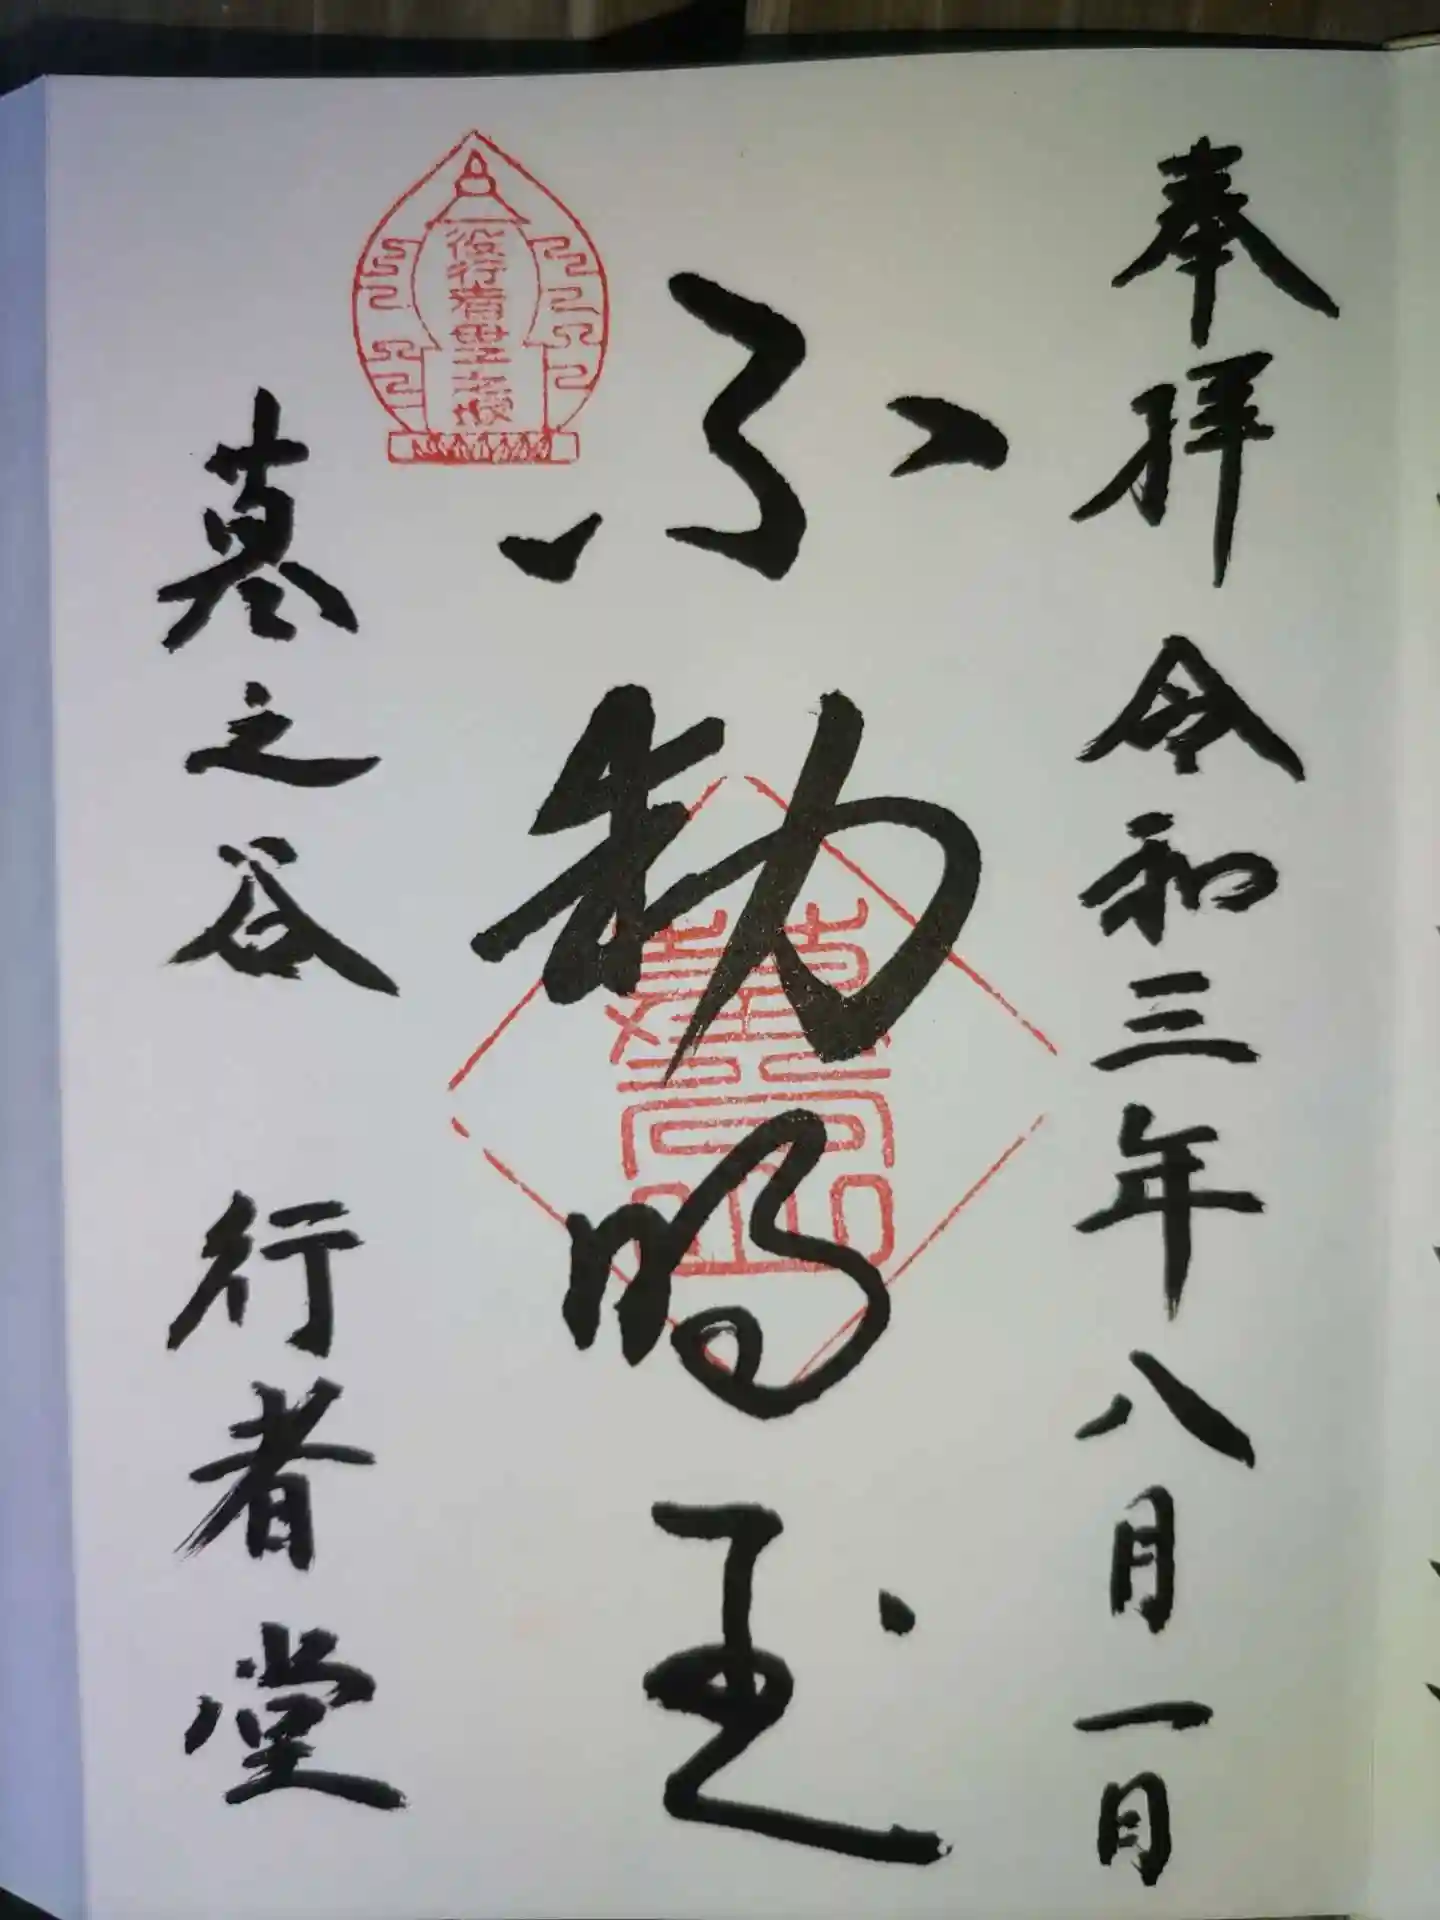 奉拝 令和三年八月一日
不動明王
役行者
墓之谷 行者堂